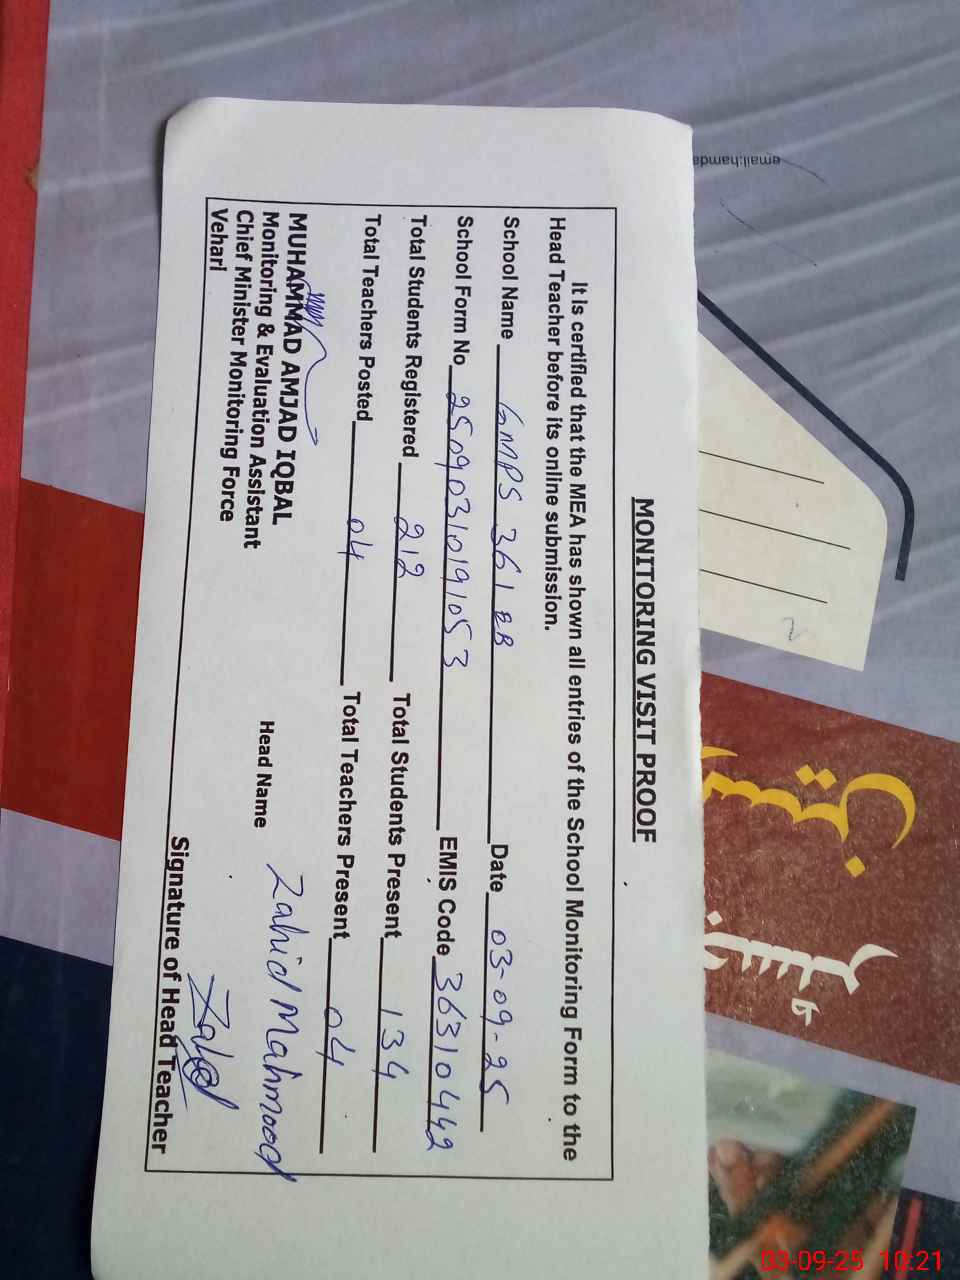 MONITORING VISIT PROOF
It is certified that the MEA has shown all entries of the School Monitoring Form to the
Head Teacher before its online submission.
School Name GMPS 361 EB Date 03-09-25
School Form No 250903101910S3 EMIS Code 36310442
Total Students Registered 212 Total Students Present 134
Total Teachers Posted 04 Total Teachers Present 04
MUHAMMAD AMJAD IQBAL
Monitoring & Evaluation Assistant
Chief Minister Monitoring Force
Vehari
Head Name Zahid Mahmood
Zahid
Signature of Head Teacher
email:hamda
رجسٹر
03-09-25 10:21